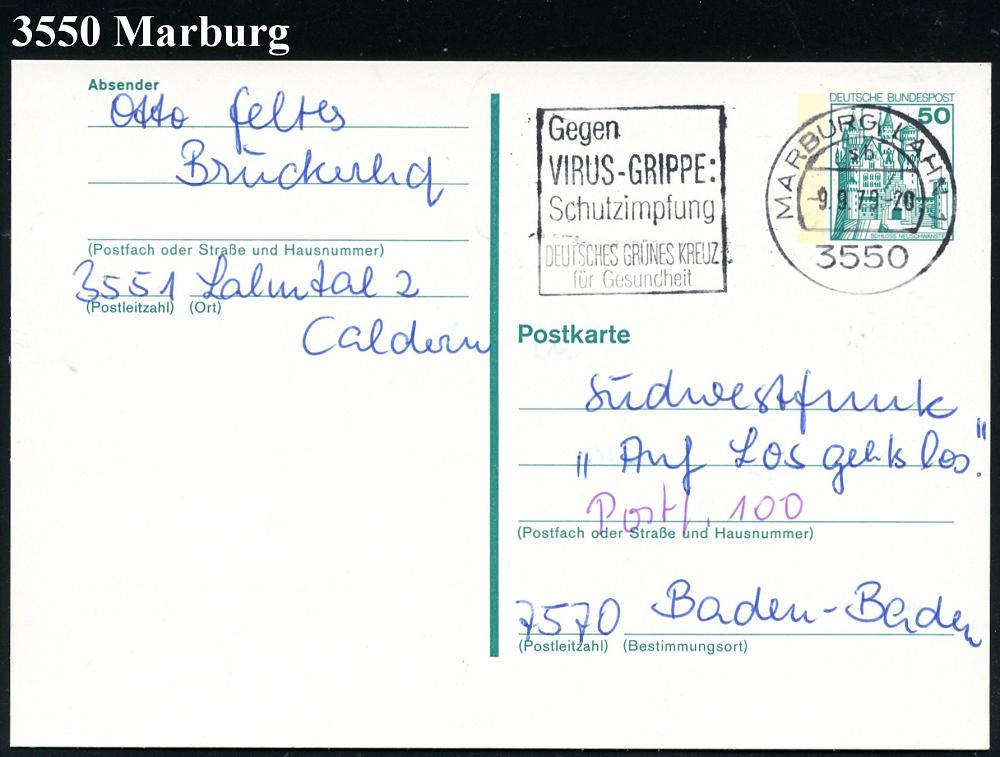 3550 Marburg
Absender
Otto Feltes
(Postfach oder Straße und Hausnummer)
3551 Lahntal 2
(Postleitzahl) (Ort)
Caldern
Gegen
VIRUS-GRIPPE:
Schutzimpfung
DEUTSCHES GRÜNES KREUZ
für Gesundheit
DEUTSCHE BUNDESPOST
50
SCHLOSS NEUSCHWANSTEIN
MARBURG, LAHN 1
sb
-9.9.79-20
3550
Postkarte
Südwestfunk
"Auf Los gehts los."
Postf. 100
(Postfach oder Straße und Hausnummer)
7570 Baden-Baden
(Postleitzahl) (Bestimmungsort)